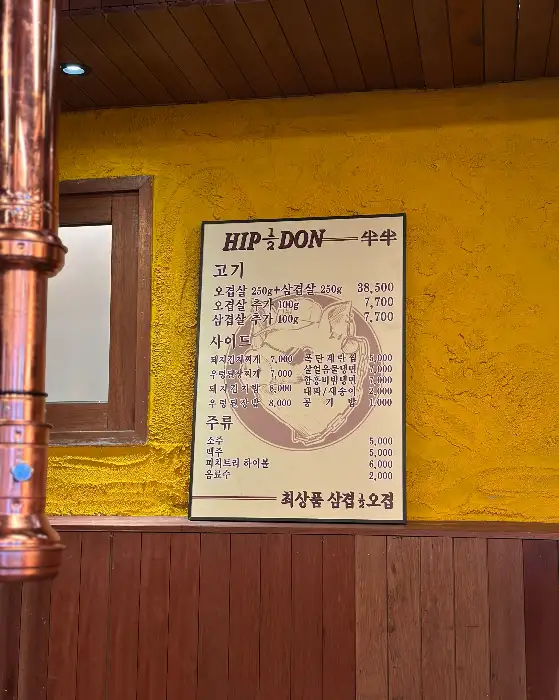 HIP 1/2 DON 半半
고기
오겹살 250g+삼겹살 250g 38,500
오겹살 추가 100g 7,700
삼겹살 추가 100g 7,700
사이드
돼지김치찌개 7,000 폭탄계란찜 5,000
우렁된장찌개 7,000 살얼음물냉면 7,000
돼지김치밥 8,000 함흥비빔냉면 7,000
우렁된장밥 8,000 대파/새송이 2,000
공기밥 1,000
주류
소주 5,000
맥주 5,000
피치트리 하이볼 6,000
음료수 2,000
최상품 삼겹 1/2 오겹